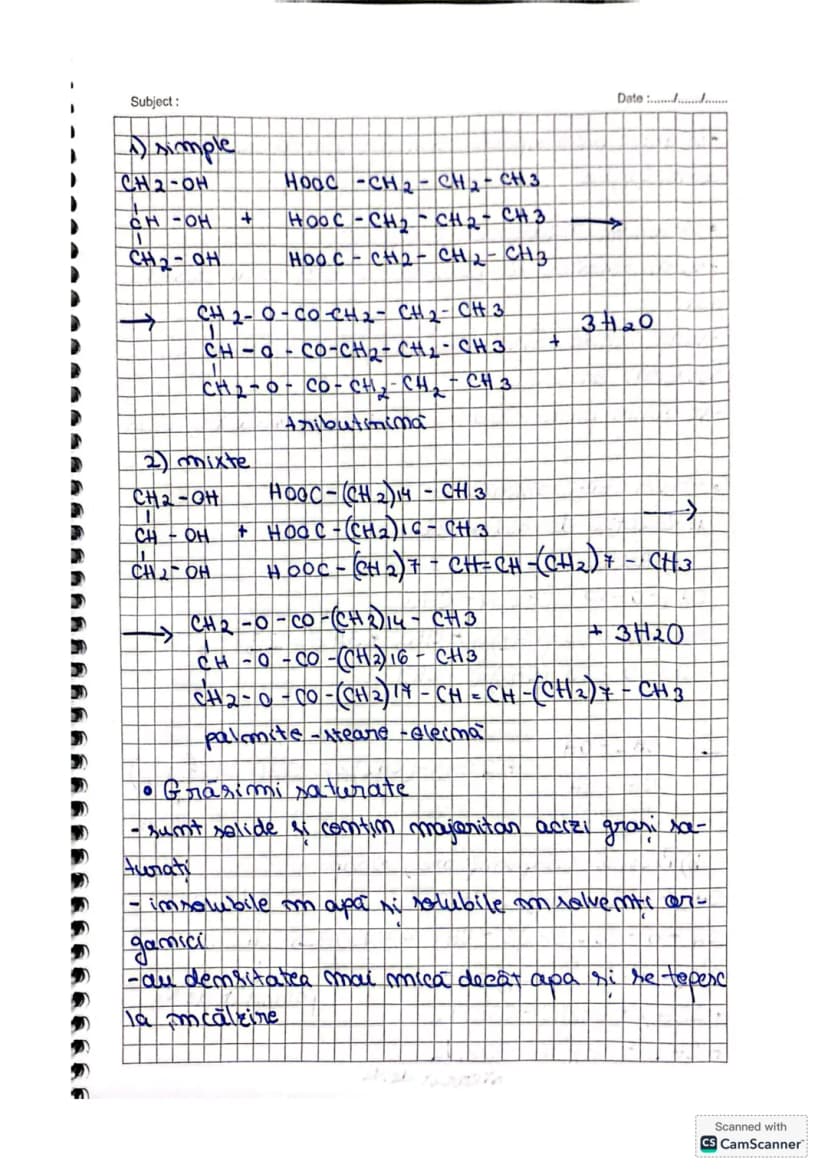 Subject :
Date :....../....../......
1) simple
CH2-OH HOOC -CH2 - CH2 - CH3
CH -OH + HOOC - CH2 - CH2 - CH3 →
CH2 - OH HOOC - CH2 - CH2 - CH3
→ CH2 - O - CO - CH2 - CH2 - CH3
CH - O - CO-CH2 - CH2 - CH3 + 3H2O
CH2 - O - CO - CH2 - CH2 - CH3
tributirină
2) mixte
CH2 - OH HOOC - (CH2)14 - CH3
CH - OH + HOOC - (CH2)16 - CH3 →
CH2 - OH HOOC - (CH2)7 - CH=CH - (CH2)7 - CH3
→ CH2 - O - CO - (CH2)14 - CH3
CH - O - CO - (CH2)16 - CH3 + 3H2O
CH2 - O - CO - (CH2)17 - CH = CH - (CH2)7 - CH3
palmito - stearo - oleină
• Grăsimi saturate
- sunt solide și conțin majoritar acizi grași sa-
turați
- insolubile în apă și solubile în solvenți or-
ganici
- au densitatea mai mică decât apa și se topesc
la încălzire
Scanned with
CS CamScanner